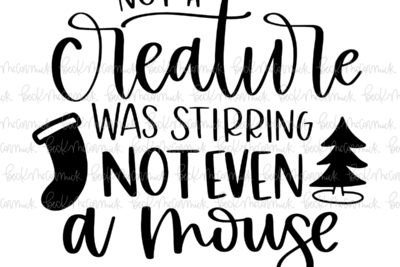 NOT A
creature
WAS STIRRING
NOT EVEN
a mouse